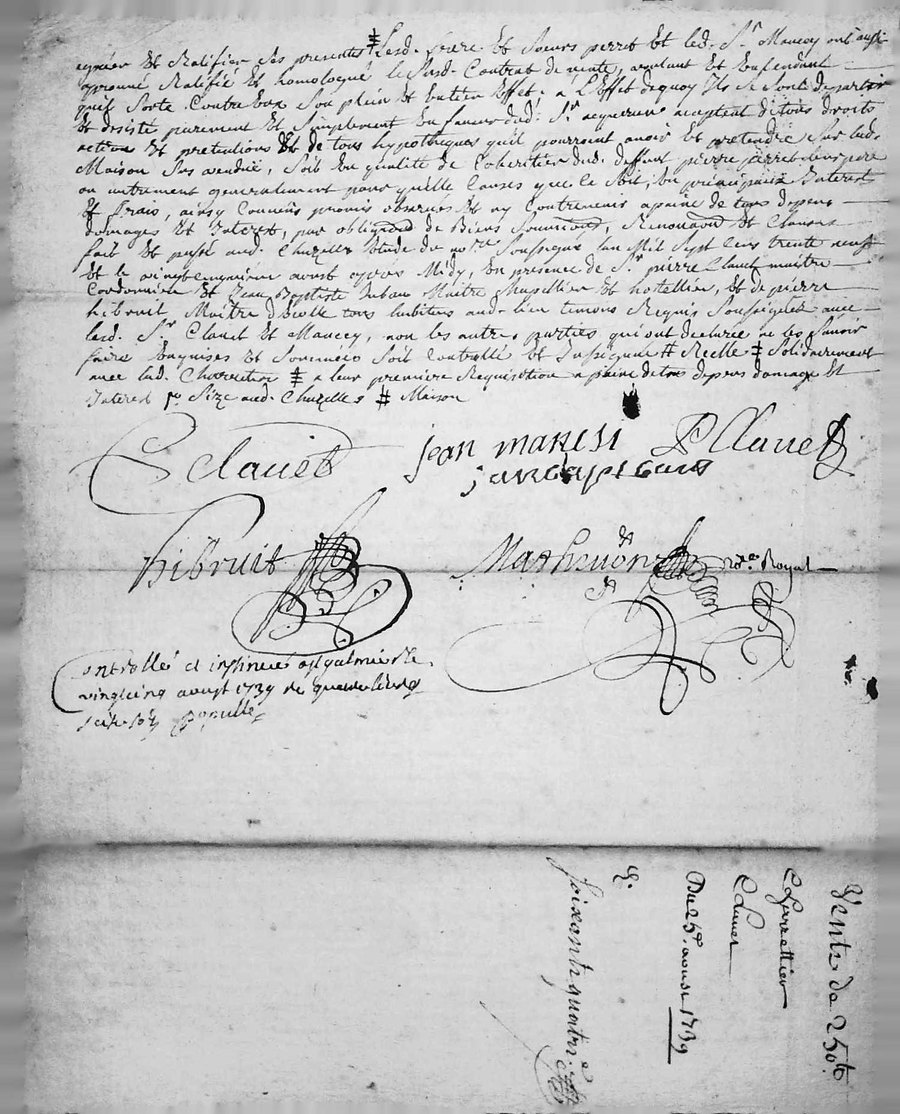 signer Et Ratifier Ses presentes ⹋ Lesd. frere Et Soeurs perret Et led. Sr. Mancey ont aussi
aprouvé Ratifié Et homologué le Susd. Contrat de vente, voulant Et Consentant
quil Sorte Contre Eux Son plein Et Entier Effet. a L'Effet dequoy Ils Se Sont departis
Et desisté purement Et Simplement En faveur dud. Sr. acquereur acceptant de tous droits
action Et pretentions Et de tous hypotheques quil pourroient avoir Et pretendre Sur lad.
Maison Sus vendüe, Soit En qualité de Coheritier dud. deffunt pierre perret leur pere
ou autrement generalement pour quelle Causes que le Soit, En principaux Interest
Et frais, ainsy Convenu promis observer Et ny Contrevenir a paine de tous depens
domages Et Interest, par obligaõn de Biens Soumissions, Renonçaõn Et Clauses
fait Et passé aud. Chazelles Etude du notre. Soussigné Lan Mil Sept Cens trente neuf
Et le vingtcinquieme aoust apres Midy, En presence de Sr. pierre Clauet maitre
Cordonnier Et Jean Baptiste Maitre Chapellier Et hostellier, Et de pierre
hibruit Maitre d'Ecolle tous habitans aud. lieu temoins Requis Soussignés avec
lesd. Sr. Clauet Et Mancey, non les autres parties qui ont declarée ne les Savoir
faire Enquises Et Sommées Soit Controllé Et Insinué ⹋ Reelle ⹋ Solidairement
avec lad. Charretier ⹋ a leur premiere Requisition a paine de tous depens domage Et
Interest aud. Chazelles ⹋ Maison
Clauet
jean maresi
P Clauet
hibruit
Mathevon
nore. Royal
Controllé et insinué a st galmier le
vingtcinq aoust 1739
Vente de 250 lt
Charrettier
Clauet
Du 25e. aoust 1739
soixante quatrie